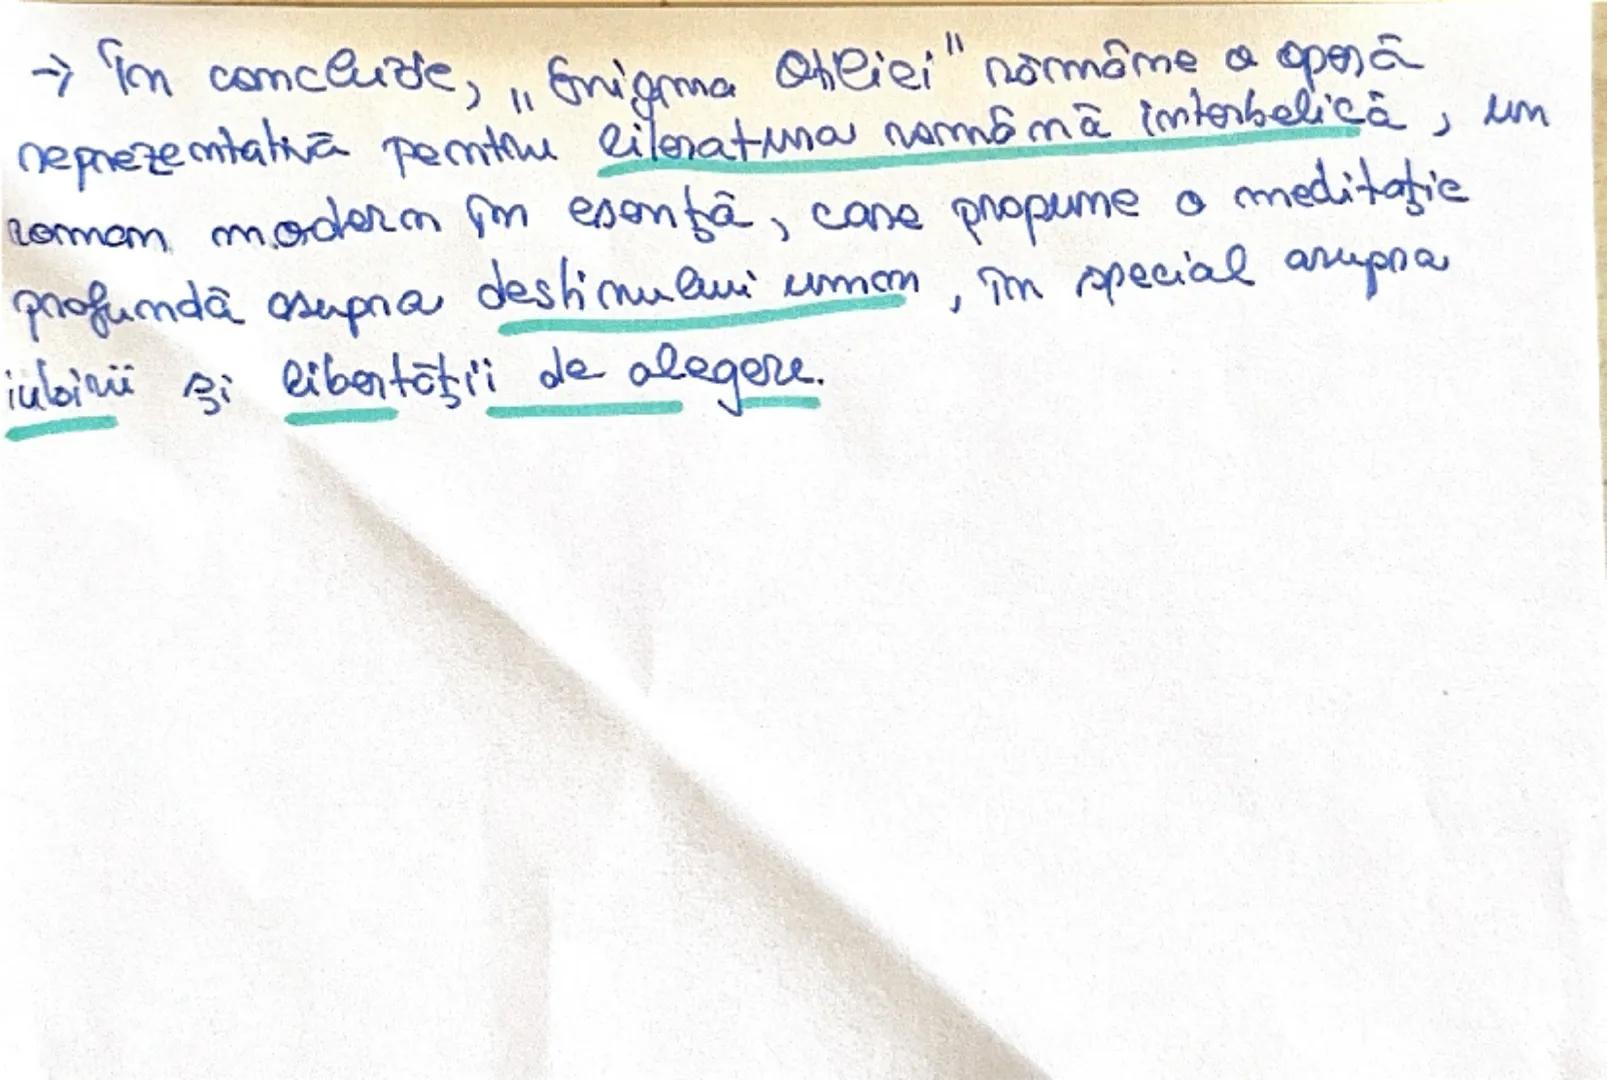 → În concluzie, „Enigma Otiliei" rămâne o operă
reprezentativă pentru literatura română interbelică, un
roman modern în esență, care propune o meditație
profundă asupra destinului uman, în special asupra
iubirii și libertății de alegere.